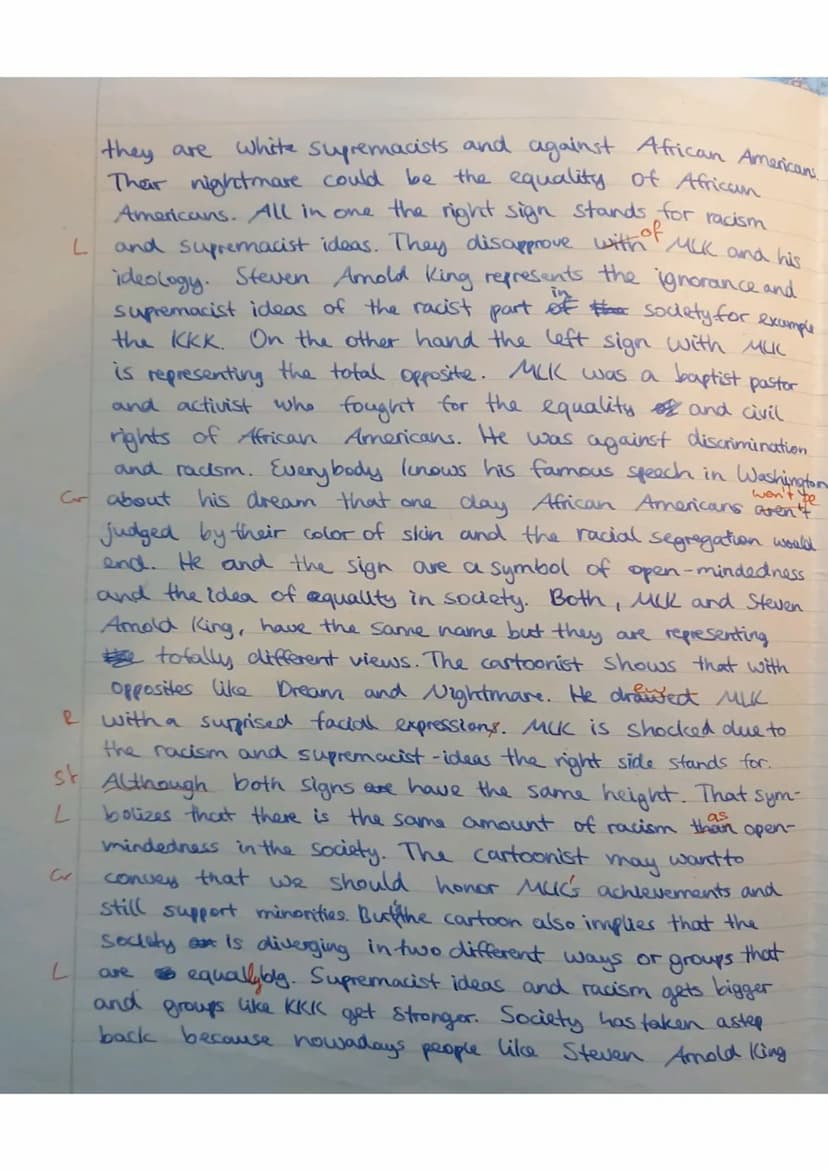 they are white supremacists and against African Americans.
Their nightmare could be the equality of African
Americans. All in one the right sign stands for racism
L and supremacist ideas. They disapprove with of MLK and his
ideology. Steven Arnold King represents the ignorance and
supremacist ideas of the racist part of in society for example
the KKK. On the other hand the left sign with MLK
is representing the total opposite. MLK was a baptist pastor
and activist who fought for the equality and civil
rights of African Americans. He was against discrimination
and racism. Everybody knows his famous speech in Washington
Gr about his dream that one day African Americans aren't won't be
judged by their color of skin and the racial segregation would
end. He and the sign are a symbol of open-mindedness
and the idea of equality in society. Both, MLK and Steven
Arnold King, have the same name but they are representing
totally different views. The cartoonist shows that with
opposites like Dream and Nightmare. He drawed ew MLK
R with a surprised facial expressions. MLK is shocked due to
the racism and supremacist-ideas the right side stands for.
St Although both signs are have the same height. That sym-
L bolizes that there is the same amount of racism than as open-
mindedness in the society. The cartoonist may want to
Gr convey that we should honor MLK's achievements and
still support minorities. But the cartoon also implies that the
society is diverging in two different ways or groups that
L are equally big. Supremacist ideas and racism gets bigger
and groups like KKK get stronger. Society has taken a step
back because nowadays people like Steven Arnold King